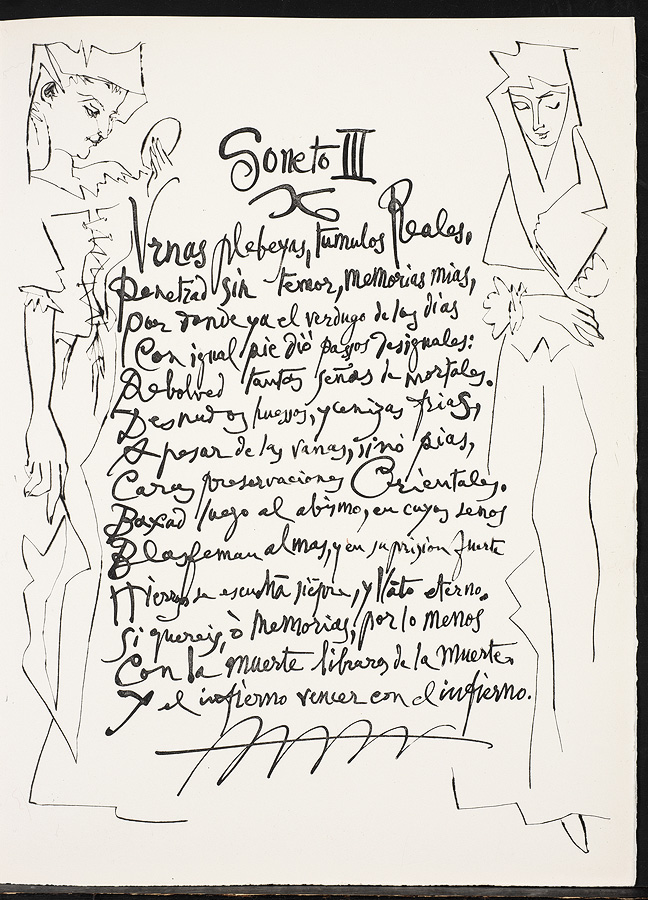 Soneto III
Vrnas plebeyas, tumulos Reales,
Penetrad sin temor, memorias mias,
Por donde ya el verdugo de los dias
Con igual pie dió passos desiguales:
Rebolved tantas señas de mortales.
Desnudos huessos, y cenizas frias,
A pesar de las vanas, sino pias,
Caras preservaciones Orientales.
Baxad luego al abismo, en cuyos senos
Blasfeman almas, y en su prision fuerte
Hierros se escuchã siẽpre, y llãto eterno.
Si quereis, ò Memorias, por lo menos
Con la muerte libraros de la Muerte.
Y el infierno vencer con el infierno.